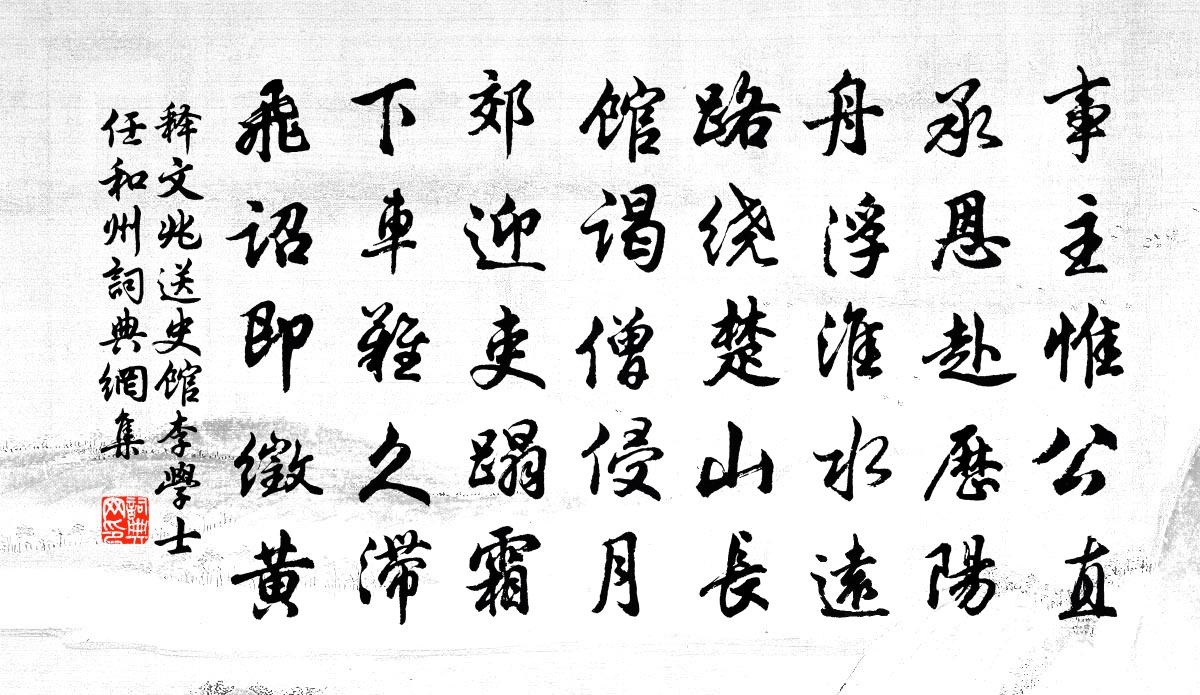 事主惟公直
承恩赴歷陽
舟浮淮水遠
路绕楚山長
館謁僧侵月
郊迎吏蹋霜
下車難久滯
飛詔即徵黄
释文兆送史館李學士
任和州詞典網集
詞典
网印